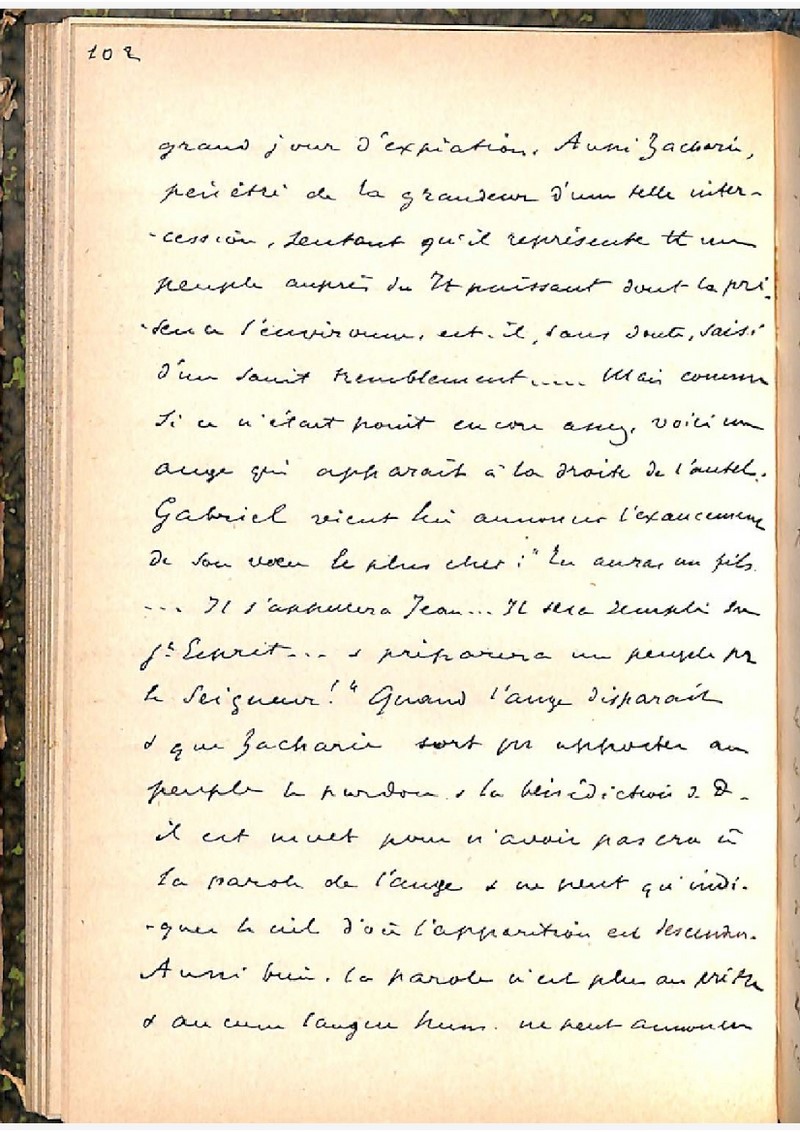 102
grand jour d'expiation. Aussi Zacharie,
pénétré de la grandeur d'une telle inter-
-cession, sentant qu'il représente tt un
peuple auprès du Tt puissant dont la pré-
-sence l'environne, est-il, sans doute, saisi
d'un saint tremblement..... Mais comme
si ce n'était point encore assez, voici un
ange qui apparaît à la droite de l'autel.
Gabriel vient lui annoncer l'exaucement
de son voeu le plus cher : "Tu auras un fils
... Il s'appellera Jean... Il sera rempli du
St Esprit... & préparera un peuple pr
le Seigneur!" Quand l'ange disparaît
& que Zacharie sort pr apporter au
peuple le pardon & la bénédiction de D.
il est muet pour n'avoir pas cru à
la parole de l'ange & ne peut qu'indi-
-quer le ciel d'où l'apparition est descendue.
Aussi bien, la parole n'est plus au prêtre
& aucune langue hum. ne peut annoncer